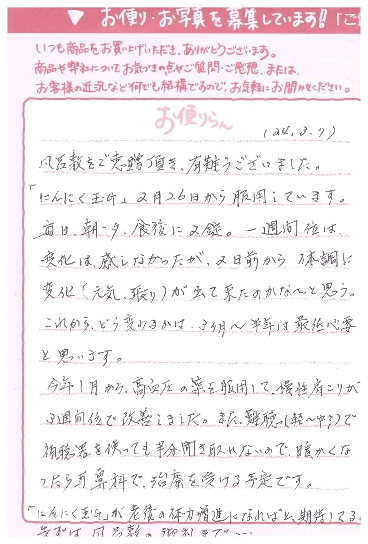 ▼ お便り・お写真を募集しています!!「ご
いつも商品をお買い上げいただき、ありがとうございます。
商品や弊社についてお気づきの点やご質問・ご感想、または、
お客様の近況など何でも結構ですので、お気軽にお聞かせください。
お便りらん
(24.3.7)
風呂敷をご恵贈頂き、有難うございました。
「にんにく玉ヰ」2月26日から服用しています。
毎日、朝・夕、食後に2錠。一週間位は、
変化は、感じなかったが、2日前から 体調に
変化(元気、張り)が出て来たのかな〜と思う。
これから、どう変わるかは、3ヶ月〜半年は最低必要
と思います。
今年1月から、高血圧の薬を服用して、慢性肩こりが
3週間位で改善しました。また、難聴(軽〜中?)で
補聴器を使っても半分聞き取れないので、暖かくな
ったら耳鼻科で、治療を受ける予定です。
「にんにく玉ヰ」が老後の体力増進になればと、期待してる。
先ずは 風呂敷の御礼まで…